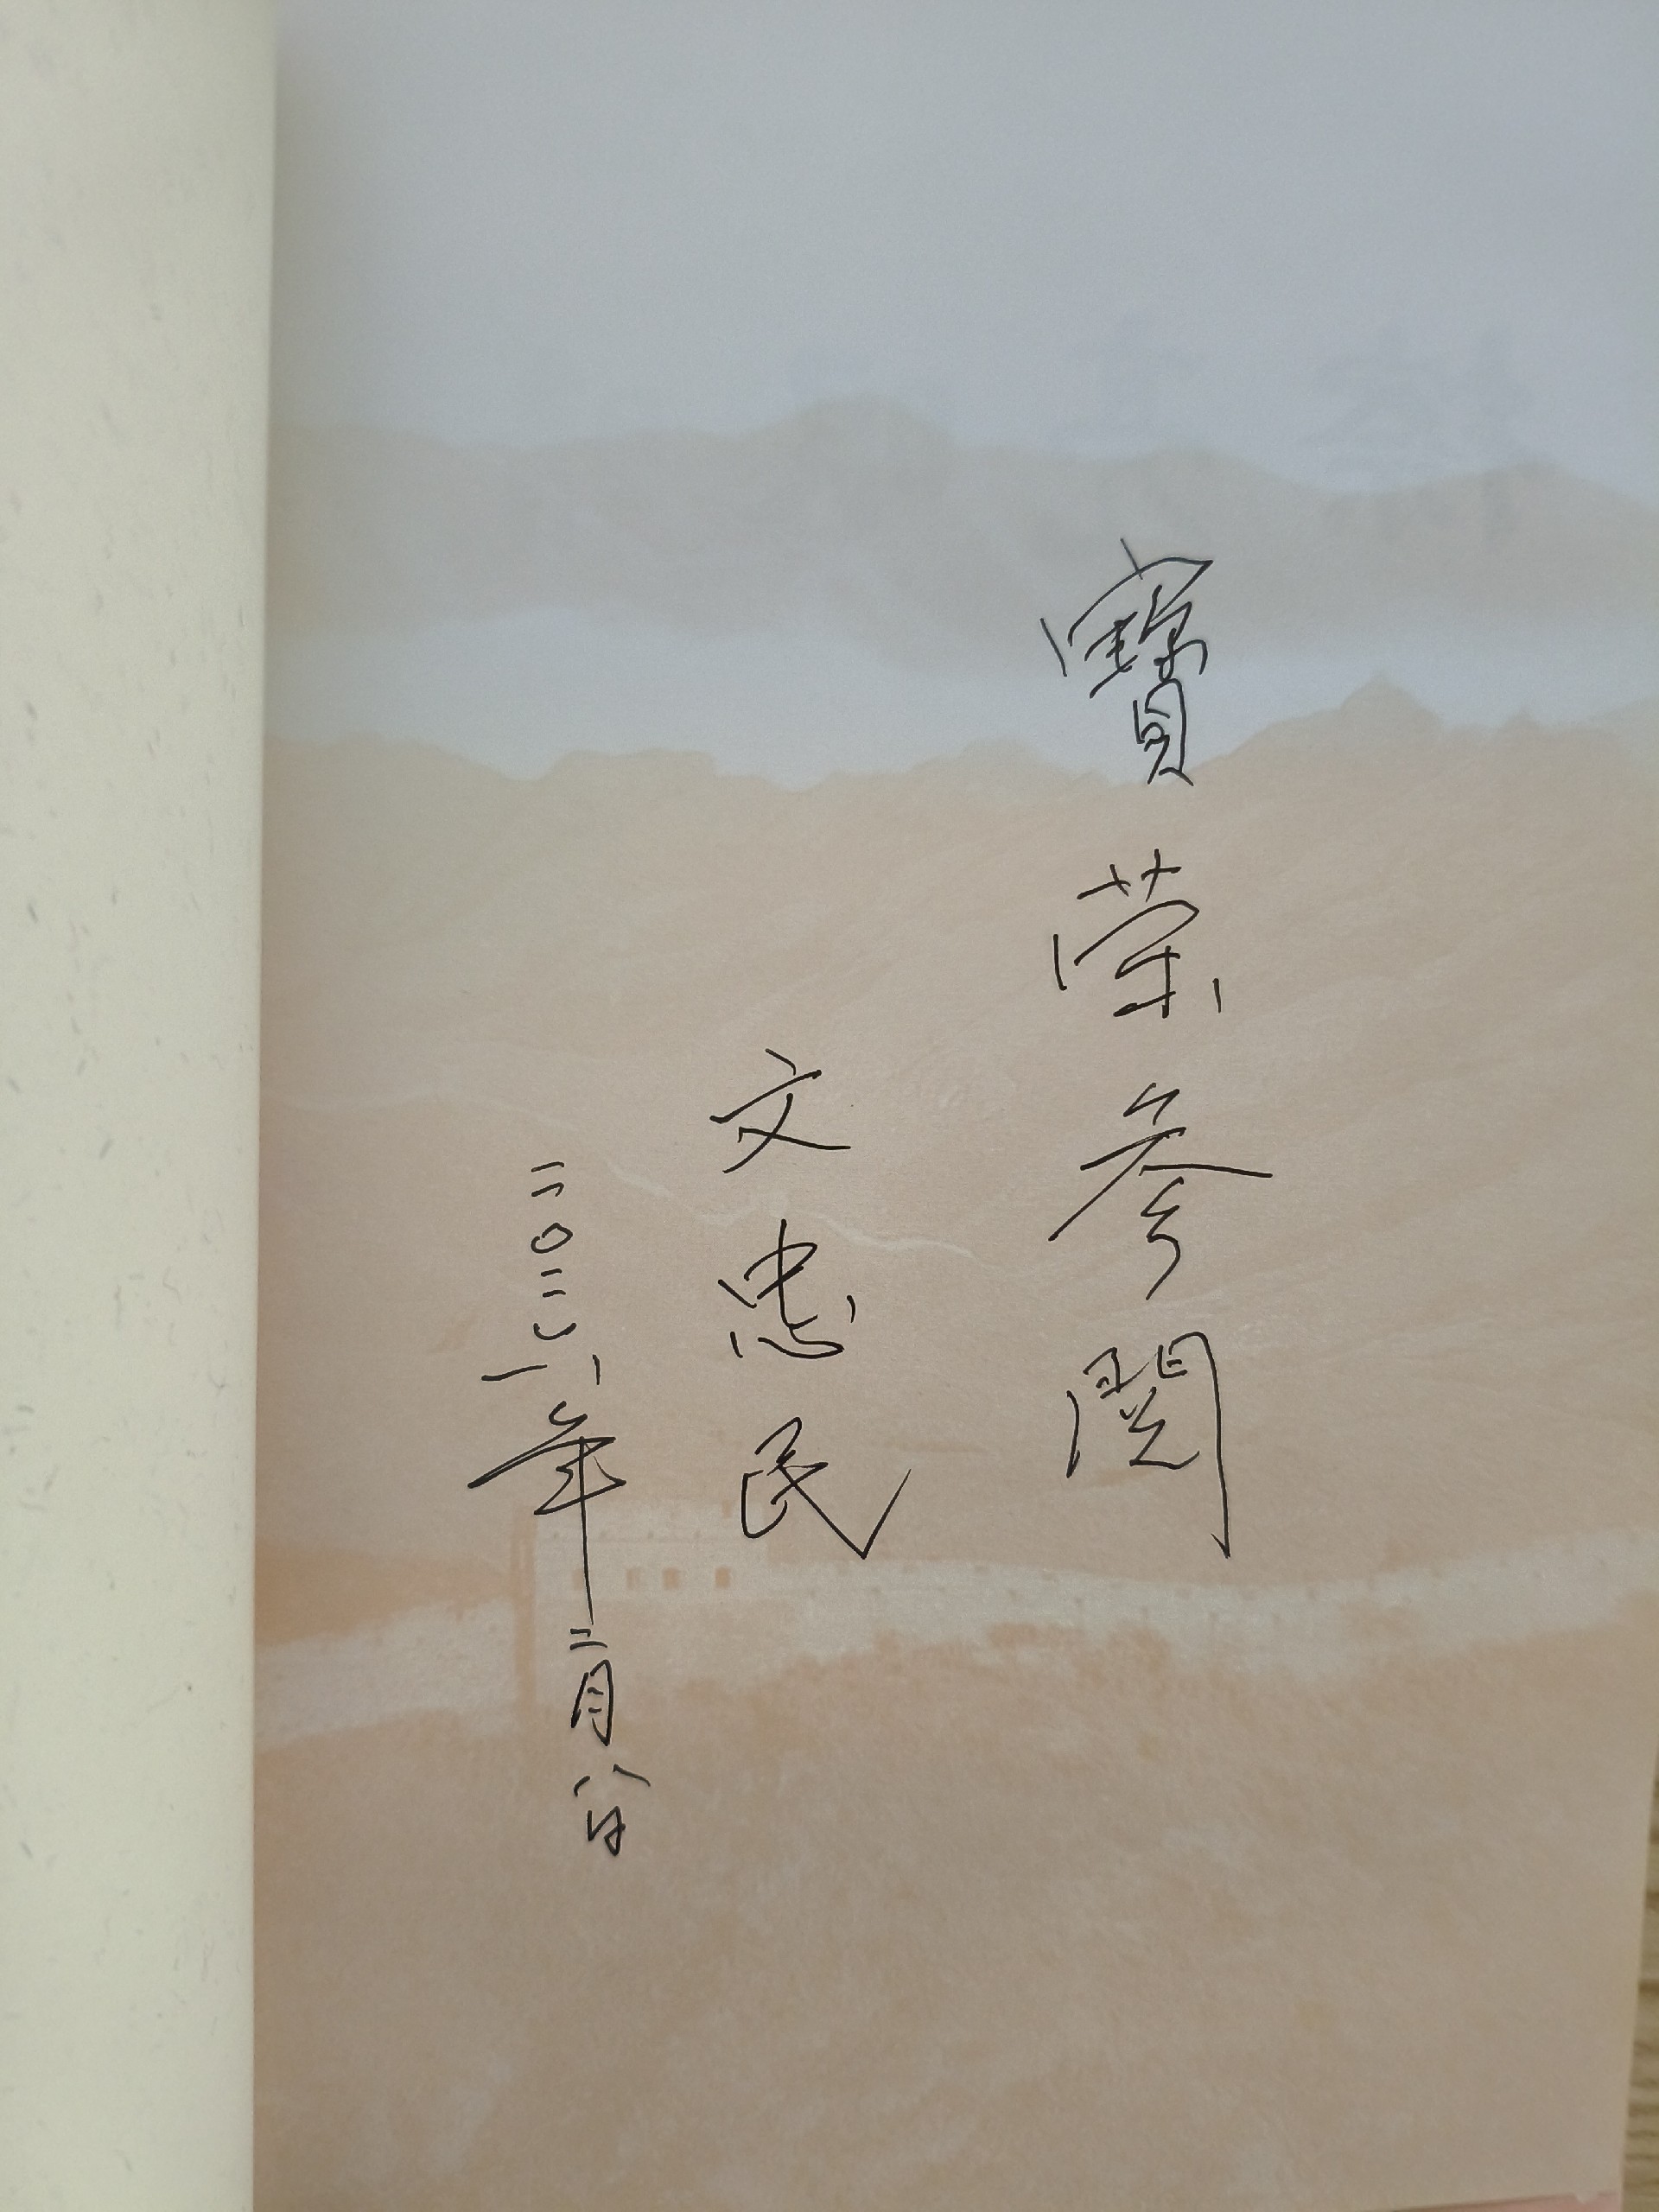 寶荣参閱
文忠民
二〇二六年二月八日